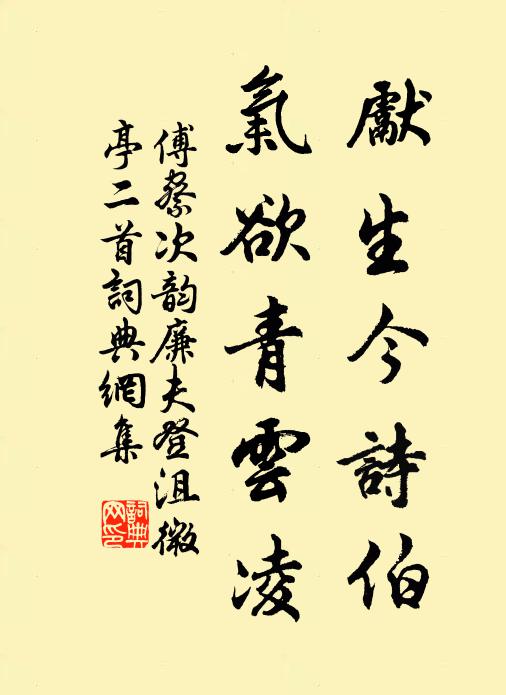 獻生今詩伯
氣欲青雲凌
傅察次韵廉夫登沮微
亭二首詞典網集
詞典
网印